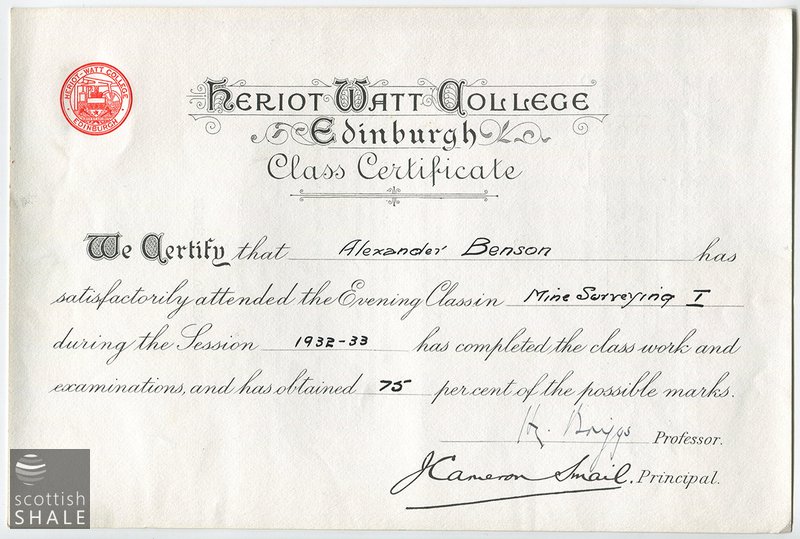 HERIOT-WATT COLLEGE
EDINBURGH
HERIOT WATT COLLEGE
Edinburgh
Class Certificate
We Certify that Alexander Benson has
satisfactorily attended the Evening Class in Mine Surveying I
during the Session 1932-33 has completed the class work and
examinations, and has obtained 75 per cent of the possible marks.
Hy. Briggs Professor.
J Cameron Smail. Principal.
scottish
SHALE